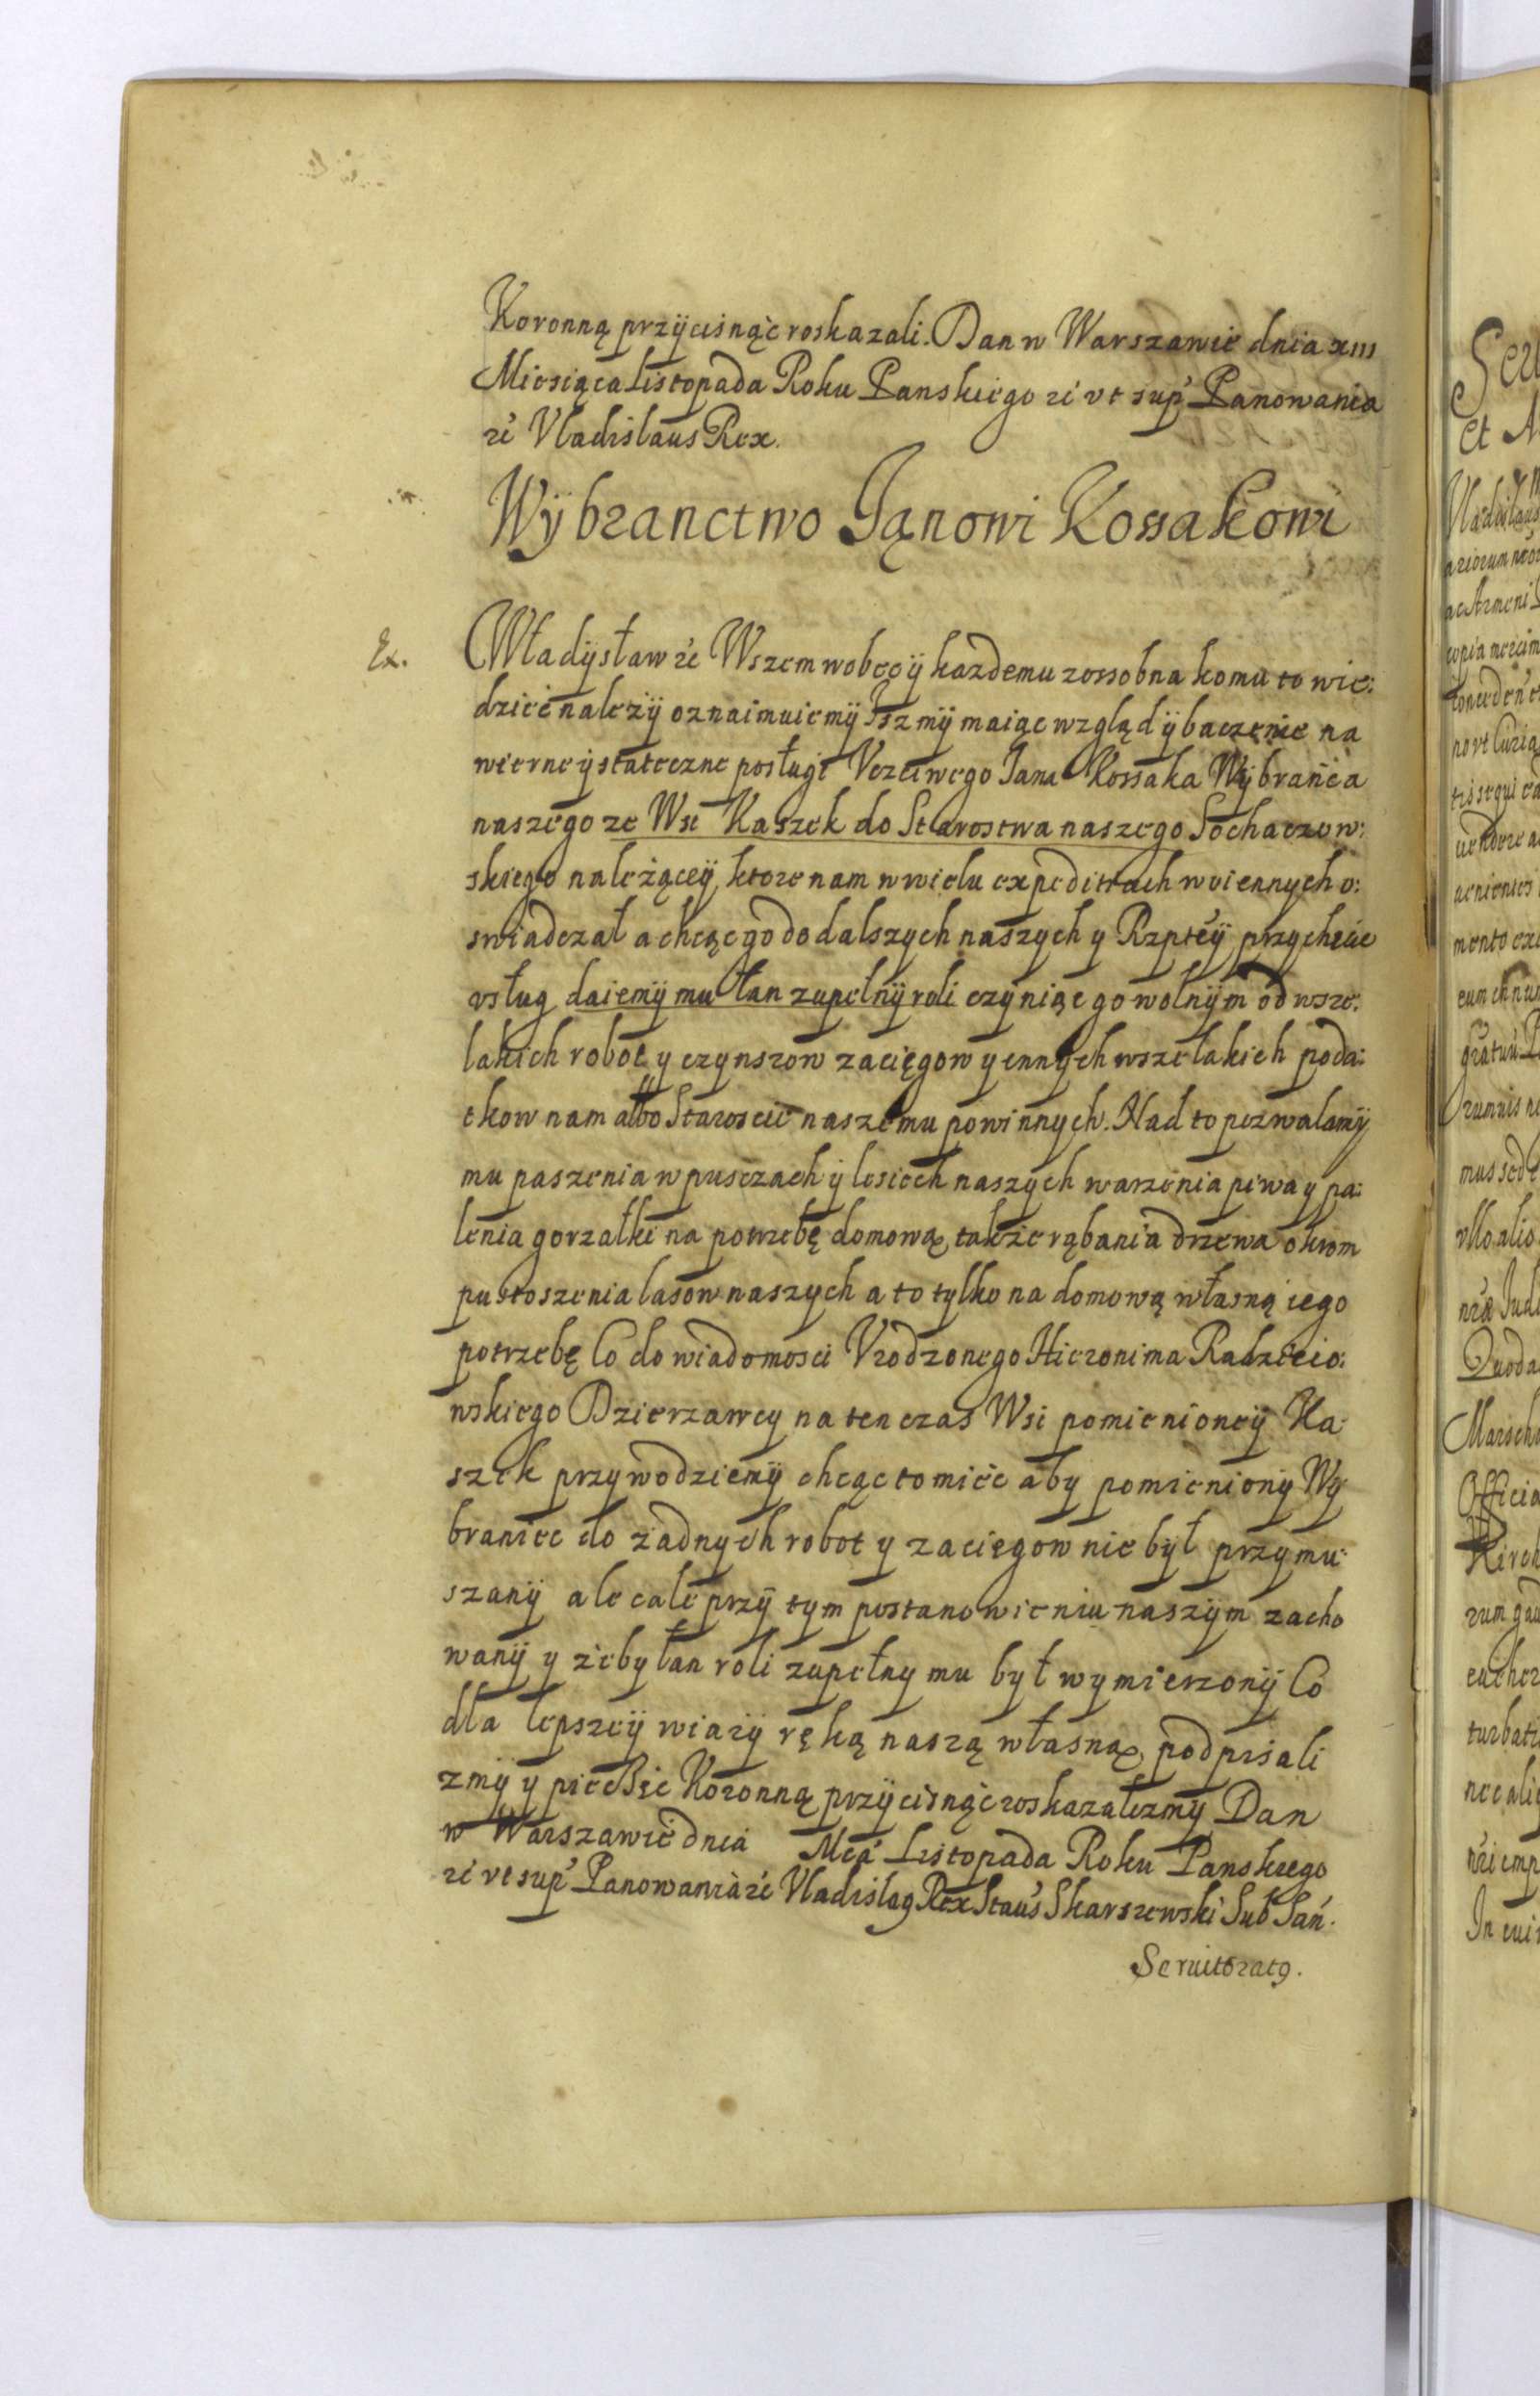 Koronną przÿcisnąć roskazali. Dan w Warszawie dnia xiii
Miesiąca Listopada Roku Panskiego zć vt sup' Panowania
zć Vladislaus Rex.
Wÿbranctwo Janowi Kossakowi
Ex.
Władÿsław zć Wszem wobec ÿ kazdemu zossobna komu to wie:
dzieć nalezÿ oznaimuiemÿ Isz mÿ maiąc wzgląd ÿ baczenie na
wierne ÿ stateczne posługi Vczciwego Jana Kossaka Wÿbrańca
naszego ze Wsi Kaszek do Starostwa naszego Sochaczow:
skiego należąceÿ, ktore nam w wielu expeditiach woiennych o:
swiadczał a chcąc go do dalszych naszych y Rzptéÿ przychęcic
vsług daiemÿ mu łan zupełnÿ roli czyniąc go wolnÿm od wsze:
lakich robot y czynszow zaciągow y ennych wszelakich poda:
tkow nam albo Staroscie naszemu powinnych. Nad to pozwalamÿ
mu paszenia w pusczach ÿ lesiech naszych warzenia piwa y pa:
lenia gorzałki na potrzebę domową, także rąbania drzewa okrom
pustoszenia lasow naszych a to tylko na domową własną iego
potrzebę Co do wiadomosci Vrodzonego Hieronima Radzieio:
wskiego Dzierzawcy na ten czas Wsi pomienioneÿ Ka:
szek przywodziemÿ chcąc to mieć aby pomienionÿ Wy
braniec do żadnych robot y zaciegow nie był przymu:
szanÿ ale cale przÿ tym postanowieniu naszÿm zacho
wanÿ y żeby łan roli zupełny mu był wymierzonÿ Co
dla lepszeÿ wiarÿ ręką naszą własną, podpisali
zmÿ y pieczęć Koronną przÿcisnąć roskazalizmÿ Dan
w Warszawie dnia Mcá Listopada Roku Panskiego
zć vt sup' Panowania zć Vladislaq Rex Staus Skarszewski Sub San.
Seruitoratq.